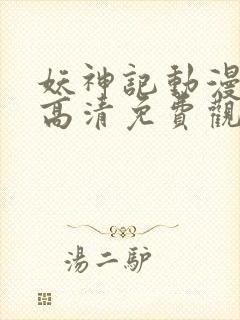 妖神記動漫
高清免費觀
湯二驴